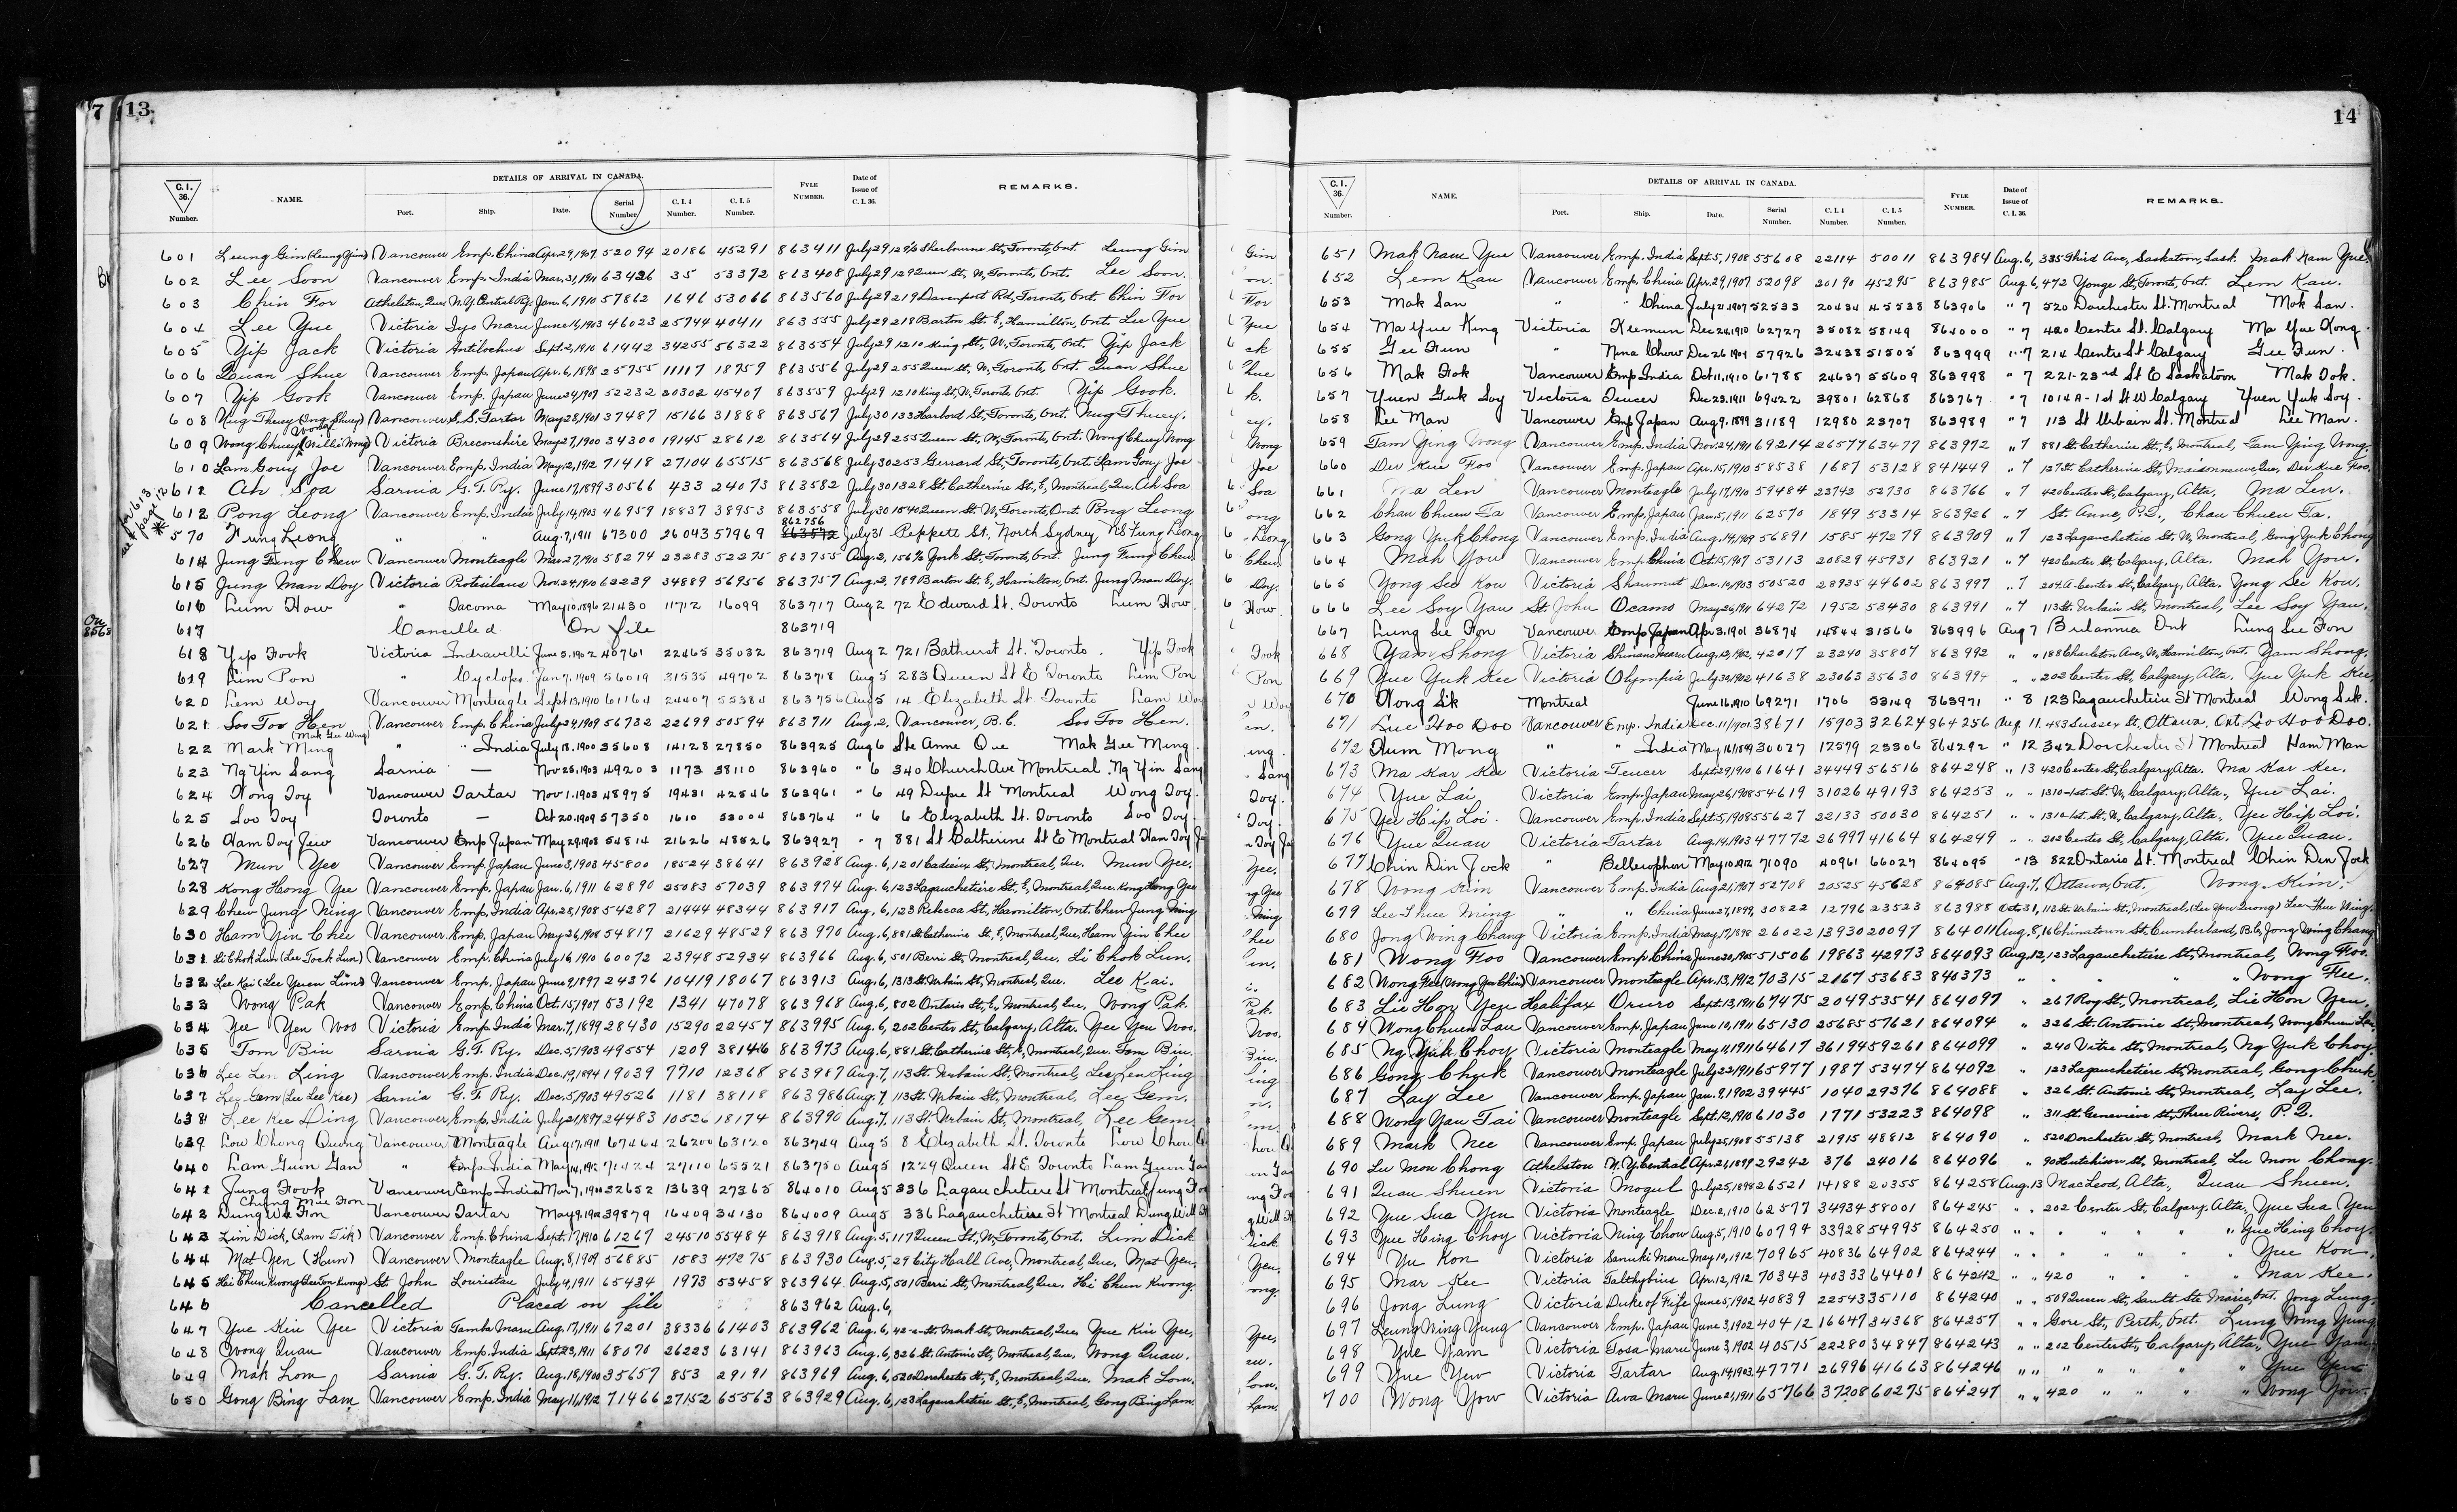 7 13
C.I. 36. Number. NAME. DETAILS OF ARRIVAL IN CANADA. Port. Ship. Date. Serial Number. C.I.4 Number. C.I.5 Number. FYLE NUMBER. Date of Issue of C.I.36. REMARKS.
601 Leung Gim (Leung Jim) Vancouver Emp. China Apr. 29, 1907 52094 20186 45291 863411 July 29 Sherbourne St., Toronto, Ont. Leung Gim
602 Lee Soon Vancouver Emp. India Mar. 31, 1911 63426 35 53372 863408 July 29 129 Queen St., W, Toronto, Ont. Lee Soon.
603 Chin For Athelstan, Que. N.Y. Central Ry. Jan. 6, 1910 57862 1646 53066 863560 July 29 219 Davenport Rd., Toronto, Ont. Chin For
604 Lee Yue Victoria Iyo Maru June 16, 1903 46023 25744 40411 863555 July 29 218 Barton St. E, Hamilton, Ont. Lee Yue
605 Yip Jack Victoria Antilochus Sept. 2, 1910 61442 34255 56322 863554 July 29 1210 King St., W, Toronto, Ont. Yip Jack
606 Quan Shue Vancouver Emp. Japan Apr. 6, 1898 25755 11117 18759 863556 July 29 255 Queen St., W, Toronto, Ont. Quan Shue
607 Yip Gook Vancouver Emp. Japan June 24, 1907 52232 20302 45407 863559 July 29 1210 King St., W, Toronto Ont. Yip Gook.
608 Nug Thuey (Ong Shuey) Vancouver S.S. Tartar May 28, 1901 37487 15166 31888 863567 July 30 133 Harbord St., Toronto, Ont. Nug Thuey.
609 Wong Chuey Wong (Willie Wong) Victoria Breconshire May 27, 1900 34300 19145 28612 863564 July 29 255 Queen St., W, Toronto, Ont. Wong Chuey Wong
610 Lam Gouy Joe Vancouver Emp. India May 12, 1912 71418 27104 65515 863568 July 30 253 Gerrard St., Toronto, Ont. Lam Gouy Joe
611 Ah Soa Sarnia G.T. Ry. June 17, 1899 30566 433 24073 863582 July 30 1328 St. Catherine St., E, Montreal, Que. Ah Soa
for 613 see page 12
612 Pong Leong Vancouver Emp. India July 14, 1903 46959 18837 38953 863558 July 30 1540 Queen St. W, Toronto, Ont. Pong Leong
* 570 Fung Leong " " Aug. 7, 1911 67300 26043 57969 862756 July 31 Peppett St. North Sydney NS Fung Leong
614 Jung Fung Chew Vancouver Monteagle Mar. 27, 1910 58274 23283 52275 863755 Aug. 2, 156½ York St., Toronto, Ont. Jung Fung Chew.
615 Jung Man Doy Victoria Protesilaus Nov. 24, 1910 62239 34889 56956 863757 Aug. 2, 789 Barton St. E, Hamilton, Ont. Jung Man Doy.
616 Lum How " Tacoma May 10, 1896 21430 11712 16099 863717 Aug 2 72 Edward St. Toronto Lum How.
617 Cancelled On file 863719
618 Yip Fook Victoria Indravelli June 5, 1902 40761 22465 35032 863719 Aug 2 721 Bathurst St. Toronto. Yip Fook
619 Lim Pon " Cyclops Jan 7, 1909 56019 31535 49702 863718 Aug 5 283 Queen St E Toronto Lim Pon
620 Lem Woy Vancouver Monteagle Sept 13, 1910 61164 24407 55384 863756 Aug 5 14 Elizabeth St Toronto Lam Woy
621 Soo Too Hen Vancouver Emp. China July 24, 1909 56732 22699 50594 863711 Aug. 2, Vancouver, B.C. Soo Too Hen.
622 Mark Ming (Mak Gee Wing) " " India July 18, 1900 35608 14128 27850 863925 Aug 6 Ste Anne Que Mak Gee Ming.
623 Ng Yin Sang Sarnia — Nov 25, 1903 49203 1173 38110 863960 " 6 340 Church Ave Montreal. Ng Yin Sang
624 Wong Toy Vancouver Tartar Nov 1, 1903 48975 19431 42546 863961 " 6 49 Dupre St Montreal Wong Toy.
625 Soo Toy Toronto — Oct 20, 1909 57350 1610 53004 863764 " 6 6 Elizabeth St. Toronto Soo Toy.
626 Ham Toy Jew Vancouver Emp Japan May 29, 1908 54814 21626 48526 863927 " 7 881 St Catherine St E Montreal Ham Toy Je
627 Mun Yee Vancouver Emp. Japan June 3, 1903 45800 18524 38641 863928 Aug. 6, 1201 Cadieux St., Montreal, Que. Mun Yee.
628 Kong Hong Yee Vancouver Emp. Japan Jan. 6, 1911 62890 25083 57039 863974 Aug. 6, 123 Lagauchetiere St., E, Montreal, Que. Kong Hong Yee
629 Chew Jung Ning Vancouver Emp. India Apr. 28, 1908 54287 21444 48344 863917 Aug. 6, 123 Rebecca St., Hamilton, Ont. Chew Jung Ning
630 Ham Yin Chee Vancouver Emp. Japan May 26, 1908 54817 21629 48529 863970 Aug. 6, 881 St Catherine St., E, Montreal, Que. Ham Yin Chee
631 Li Chok Lun (Lee Jock Lun) Vancouver Emp. China July 16, 1910 60072 23948 52934 863966 Aug. 6, 501 Berri St., Montreal, Que. Li Chok Lun.
632 Lee Kai (Lee Yuen Lim) Vancouver Emp. Japan June 9, 1897 24376 10419 18067 863913 Aug. 6, 131 St. Urbain St., Montreal, Que. Lee Kai.
633 Wong Pak Vancouver Emp. China Oct. 15, 1907 53192 1341 47078 863968 Aug. 6, 802 Ontario St., E, Montreal, Que. Wong Pak.
634 Yee Yen Woo Victoria Emp. India Mar. 7, 1899 28430 15290 22457 863995 Aug. 6, 202 Center St., Calgary, Alta. Yee Yen Woo.
635 Tom Bin Sarnia G.T. Ry. Dec. 5, 1903 49554 1209 38146 863973 Aug. 6, 881 St. Catherine St., E, Montreal, Que. Tom Bin.
636 Lee Len Ling Vancouver Emp. India Dec. 19, 1894 19039 7710 12368 863987 Aug. 7, 113 St. Urbain St., Montreal, Lee Len Ling
637 Lee Gem (Lee Lee Kee) Sarnia G.T. Ry. Dec. 5, 1903 49526 1181 38118 863986 Aug. 7, 113 St. Urbain St., Montreal, Lee Gem.
638 Lee Kee Ding Vancouver Emp. India July 21, 1897 24483 10526 18174 863990 Aug. 7, 113 St. Urbain St., Montreal, Lee Gem.
639 Low Chong Quing Vancouver Monteagle Aug 17, 1911 67464 26200 63120 863749 Aug 5 8 Elizabeth St. Toronto Low Chou Q
640 Lam Guon Gan " Emp. India May 14, 1912 71424 27110 65521 863750 Aug 5 1229 Queen St E Toronto Lam Guon Gan
641 Jung Fook Vancouver Emp. India Mar 7, 1900 32652 13639 27365 864010 Aug 5 336 Lagauchetiere St Montreal Jung Foo
Chung Mue Fon
642 Dung We Fon Vancouver Tartar May 9, 1902 39879 16409 34130 864009 Aug 5 336 Lagauchetiere St Montreal Dung Will F
643 Lim Dick, (Lam Tik) Vancouver Emp. China Sept. 17, 1910 61267 24510 55484 863918 Aug. 5, 117 Queen St., W, Toronto, Ont. Lim Dick
644 Mat Yen (Houn) Vancouver Monteagle Aug. 8, 1909 56885 1583 47275 863930 Aug. 5, 29 City Hall Ave, Montreal, Que. Mat Yen.
645 Hei Chun Kwong St. John Louristan July 4, 1911 65434 1973 53458 863964 Aug. 5, 501 Berri St., Montreal, Que. Hi Chun Kwong.
646 Cancelled Placed on file 863962 Aug. 6,
647 Yue Kin Yee Victoria Tamba Maru Aug. 17, 1911 67201 38336 61403 863962 Aug. 6, St. Mark St., Montreal, Que. Yue Kin Yee.
648 Wong Quan Vancouver Emp. India Sept. 23, 1911 68070 26223 63141 863963 Aug. 6, 326 St. Antonie St., Montreal, Que. Wong Quan.
649 Mak Lom Sarnia G.T. Ry. Aug. 18, 1900 35657 853 29191 863969 Aug. 6, 520 Dorchester St., E, Montreal, Que. Mak Lom.
650 Gong Bing Lam Vancouver Emp. India May 11, 1912 71466 27152 65563 863929 Aug. 6, 123 Lagauchetiere St., E, Montreal, Gong Bing Lam.
14
C.I. 36. Number. NAME. DETAILS OF ARRIVAL IN CANADA. Port. Ship. Date. Serial Number. C.I.4 Number. C.I.5 Number. FYLE NUMBER. Date of Issue of C.I.36. REMARKS.
651 Mak Nam Yue Vancouver Emp. India Sept. 5, 1908 55608 22114 50011 863984 Aug. 6, 335 Third Ave, Saskatoon, Sask. Mak Nam Yue.
652 Lem Kau Vancouver Emp. China Apr. 29, 1907 52098 20190 45295 863985 Aug. 6, 472 Yonge St., Toronto, Ont. Lem Kau.
653 Mak San " " China July 21, 1907 52533 20434 45538 863906 " 7 520 Dorchester St. Montreal Mak San.
654 Ma Yue King Victoria Keemun Dec 24, 1910 62727 35082 58149 864000 " 7 420 Centre St. Calgary Ma Yue Kong.
655 Gee Fun " Ning Chow Dec 26, 1909 57926 32438 51505 863999 " 7 214 Centre St Calgary Gee Fun.
656 Mak Fok Vancouver Emp India Oct 11, 1910 61785 24637 55609 863998 " 7 221-23rd St E Saskatoon Mak Fok.
657 Yuen Guk Soy Victoria Teucer Dec 23, 1911 69422 39801 62868 863767 " 7 1014 A-1st St W Calgary Yuen Yuk Soy.
658 Lee Man Vancouver Emp Japan Aug 9, 1899 31189 12980 23707 863989 " 7 113 St Urbain St. Montreal Lee Man.
659 Tam Ying Wong Vancouver Emp. India Nov. 24, 1911 69214 26577 63477 863972 " 7 881 St. Catherine St., E, Montreal, Tam Ying Wong.
660 Der Kee Foo Vancouver Emp. Japan Apr. 15, 1910 58538 1687 53128 841449 " 7 127 St. Catherine St., Maisonneuve, Que. Der Kee Foo.
661 Ma Len Vancouver Monteagle July 17, 1910 59484 23742 52730 863766 " 7 420 Center St., Calgary, Alta. Ma Len.
662 Chau Chuen Ta Vancouver Emp. Japan Jan. 5, 1911 62570 1849 53314 863926 " 7 St. Anne, P.Q., Chau Chuen Ta.
663 Gong Yuk Chong Vancouver Emp. India Aug. 14, 1909 56891 1585 47279 863909 " 7 123 Lagauchetiere St., W, Montreal, Gong Yuk Chong
664 Mah You Vancouver Emp. China Oct. 15, 1907 53113 20829 45931 863921 " 7 420 Center St., Calgary, Alta. Mah You.
665 Yong See Kou Victoria Shawmut Dec. 10, 1903 50520 28935 44602 863997 " 7 204 A. Center St., Calgary, Alta. Yong See Kou.
666 Lee Soy Yau St. John Ocamo May 26, 1911 64272 1952 53430 863991 " 7 113 St. Urbain St., Montreal, Lee Soy Yau.
667 Lung See Fon Vancouver Emp Japan Apr 3, 1901 36874 14844 31566 863996 Aug 7 Britannia Ont Lung See Fon
668 Yam Shong Victoria Shinano Maru Aug. 12, 1902 42017 23240 35807 863992 " " 188 Charlton Ave, W, Hamilton, Ont. Yam Shong.
669 Yue Yuk Kee Victoria Olympia July 30, 1902 41638 23063 35630 863994 " " 202 Center St., Calgary, Alta. Yue Yuk Kee.
670 Wong Sik Montreal June 16, 1910 69271 1706 53149 863971 " 8 123 Lagauchetiere St Montreal Wong Sik.
671 Lue Hoo Doo Vancouver Emp. India Dec. 11, 1901 38671 15903 32624 864256 Aug. 11. 453 Sussex St., Ottawa, Ont. Leo Hoo Doo.
672 Hum Mong " " India May 16, 1899 30027 12579 23306 864292 " 12 342 Dorchester St Montreal Ham Man
673 Ma Kar Kee Victoria Teucer Sept. 29, 1910 61641 34449 56516 864248 " 13 420 Center St., Calgary, Alta. Ma Kar Kee.
674 Yue Lai Victoria Emp. Japan May 26, 1908 54619 31026 49193 864253 " " 1310-1st. St. W, Calgary, Alta., Yue Lai.
675 Yee Hip Loi. Vancouver Emp. India Sept. 5, 1908 55627 22133 50030 864251 " " 1310-1st. St., W, Calgary, Alta., Yee Hip Loi.
676 Yue Quan Victoria Tartar Aug. 14, 1903 47772 26997 41664 864249 " " 202 Center St., Calgary, Alta. Yue Quan.
677 Chin Din Jock " Bellerophon May 10, 1912 71090 40961 66027 864095 " 13 822 Ontario St. Montreal Chin Den Jock
678 Wong Kim Vancouver Emp. India Aug. 21, 1907 52708 20525 45628 864085 Aug. 7, Ottawa, Ont. Wong Kim.
679 Lee Thue Ming " " China June 27, 1899 30822 12796 23523 863988 Oct. 31, 113 St. Urbain St., Montreal, (Lee You Quong) Lee Thue Wing.
680 Jong Wing Chang Victoria Emp. India May 17, 1898 26022 13930 20097 864011 Aug. 8, 16 Chinatown St. Cumberland, B.C. Jong Wing Chang
681 Wong Foo Vancouver Emp. China June 20, 1905 51506 19863 42973 864093 Aug. 12, 123 Lagauchetiere St., Montreal, Wong Foo.
682 Wong Fee (Wong Yen Chin) Vancouver Monteagle Apr. 13, 1912 70315 2167 53683 840373 " " " Wong Fee.
683 Lie Hon Yeu Halifax Oruro Sept. 13, 1911 67475 2049 53541 864097 " 267 Roy St., Montreal, Lie Hon Yeu.
684 Wong Chuen Lau Vancouver Emp. Japan June 10, 1911 65130 25685 57621 864094 " 326 St. Antonie St., Montreal, Wong Chuen Lau
685 Ng Yuk Choy Victoria Monteagle May 14, 1911 64617 36194 59261 864099 " 240 Vitre St., Montreal, Ng Yuk Choy.
686 Gong Chuck Vancouver Monteagle July 22, 1911 65977 1987 53474 864092 " 123 Lagauchetiere St., Montreal, Gong Chuck.
687 Lay Lee Vancouver Emp. Japan Jan. 9, 1902 39445 1040 29376 864088 " 326 St. Antonie St., Montreal, Lay Lee.
688 Wong Yau Tai Vancouver Monteagle Sept. 12, 1910 61030 1771 53223 864098 " 311 St. Genevieve St., Three Rivers, P.Q.
689 Mark Nee Vancouver Emp. Japan July 25, 1908 55138 21915 48812 864090 " 520 Dorchester St., Montreal, Mark Nee.
690 Lu Mon Chong Athelston N.Y. Central Apr. 21, 1899 29242 376 24016 864096 " 90 Hutchison St., Montreal, Lu Mon Chong.
691 Quan Shuen Victoria Mogul July 25, 1898 26521 14188 20355 864258 Aug. 13 MacLeod, Alta., Quan Shuen.
692 Yue Sua Yen Victoria Monteagle Dec. 2, 1910 62577 34934 58001 864245 " " 202 Center St., Calgary, Alta., Yue Sua Yen
693 Yue Hing Choy Victoria Ning Chow Aug. 5, 1910 60794 33928 54995 864250 " " " " " " Yue Hing Choy.
694 Yu Kon Victoria Sanuki Maru May 10, 1912 70965 40836 64902 864244 " " " " " " Yue Kon.
695 Mar Kee Victoria Talthybius Apr. 12, 1912 70343 40333 64401 864242 " " 420 " " " " Mar Kee.
696 Jong Lung Victoria Duke of Fife June 5, 1902 40839 22543 35110 864240 " " 509 Queen St., Sault Ste Marie, Ont. Jong Lung.
697 Leung Ning Yung Vancouver Emp. Japan June 3, 1902 40412 16647 34368 864257 " " Gore St., Perth, Ont. Lung Ning Yung
698 Yue Yam Victoria Tosa Maru June 3, 1902 40515 22280 34847 864243 " " 202 Center St., Calgary, Alta., Yue Yam.
699 Yue Yew Victoria Tartar Aug. 14, 1903 47771 26996 41663 864246 " " " " " " Yue Yew
700 Wong Yow Victoria Awa Maru June 21, 1911 65766 37208 60275 864247 " " 420 " " " " Wong Yow.